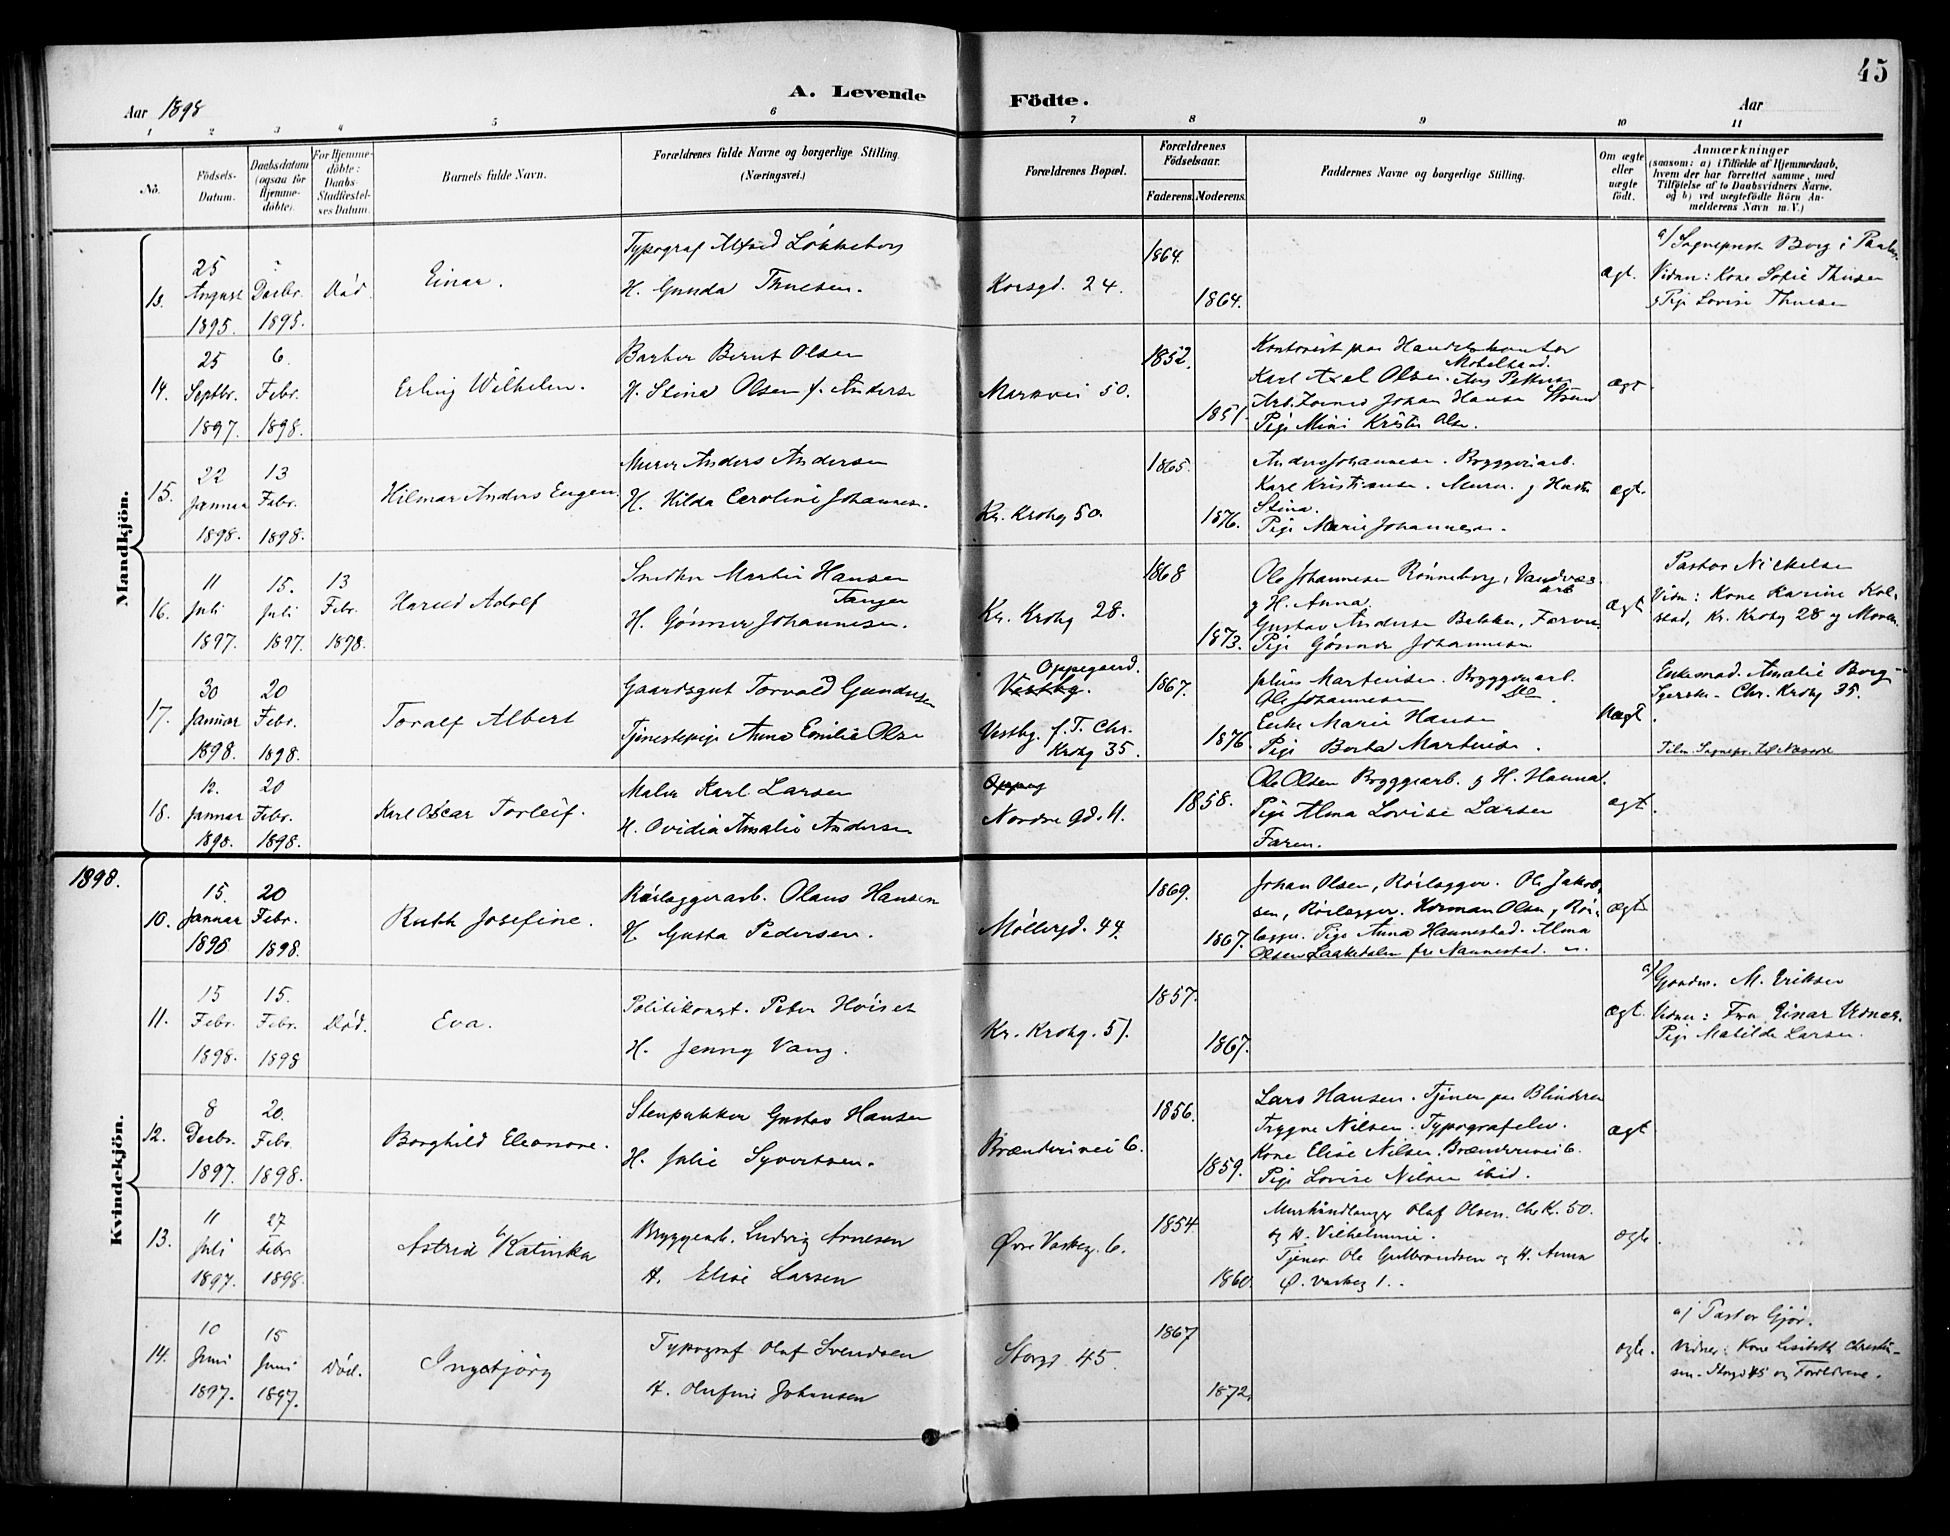 45
A. Levende Födte.
Aar 1898
Aar
1 2 3 4 5 6 7 8 9 10 11
No.
Födsels-Datum.
Daabsdatum (ogsaa for Hjemmedöbte).
For Hjemmedöbte: Daabs-Stadfæstelses Datum.
Barnets fulde Navn.
Forældrenes fulde Navne og borgerlige Stilling. (Næringsvei.)
Forældrenes Bopæl.
Forældrenes Födselsaar.
Faderens.
Moderens.
Faddernes Navne og borgerlige Stilling.
Om ægte eller uægte födt.
Anmærkninger
(saasom: a) i Tilfælde af Hjemmedaab, hvem der har forrettet samme, med Tilföielse af to Daabsvidners Navne, og b) ved uægtefödte Börn Anmelderens Navn m.V.)
Mandkjön.
13.
25 August 1895.
? Decbr. 1895.
Död.
Einar.
Typograf Alfred Løkkeberg
H. Gunda Thuesen.
Korsgd. 24.
1864.
1864.
ægt.
a/ Sogneprest Borg i
Vidner: Kone Sofie Thuesen
g Pige Lovise Thuesen
14.
25 Septbr. 1897.
6. Febr. 1898.
Erling Wilhelm.
Barber Bernt Olsen
H. Stina Olsen f. Anderse
Markvei 50.
1852.
1851.
Kontorist paa Handelskontor
Karl Axel Olsen.
Johan Hansen
Pige Mini Olsen.
ægt.
15.
22 Januar 1898.
13 Febr. 1898.
Hilmar Anders Eugen.
Murer Anders Andersen
H. Hilda Caroline Johannesen.
Kr. Krohg 50.
1865.
1876.
Anders Johannesen. Bryggeriarb.
Karl Kristiansen. Murer. g Hustr
Stina.
Pige Marie Johannesen.
ægt.
16.
11 Juli 1897.
15. Juli 1897.
13 Febr. 1898.
Harald Adolf
Snedker Martin Hansen
Tangen
H. Gønner Johannesen.
Kr. Krohg 28.
1868
1873.
Ole Johannesen Rønneberg, Vandvæs
arb
g H. Anna.
Gustav Andersen Bekken, Farver
Pige Gønner Johannesen
ægt.
Pastor Nickelsen
Vidn: Kone Karine Kolstad, Kr. Krohg 28 g Moren
17.
30 Januar 1898.
20 Febr. 1898.
Toralf Albert
Gaardsgut Torvald Gundersen
Tjenestepige Anna Emilie Olse
Oppegaard.
Vestby.
Vestby. f. T. Chr. Krohg 35.
1867.
1876.
Julius Martinsen. Bryggeriarb.
Ole Johannesen Do.
Enke Marie Hansen
Pige Berta Martinse.
Uægt.
Enkemad. Amalie Borg
Chr. Krohg 35.
18.
12. Januar 1898.
20 Febr. 1898.
Karl Oscar Torleif.
Maler Karl Larsen
H. Ovidia Amalie Andersen
Nordre gd. 11.
1858.
Ole Olsen Bryggeriarb. g H. Hanna.
Pige Alma Lovise Larsen
Faren.
ægt.
1898.
Kvindekjön.
10.
15. Januar 1898
20 Febr. 1898.
Ruth Josefine.
Rørlæggerarb. Olaus Hansen
H. Gusta Pedersen.
Møllergd. 44.
1869.
1867.
Johan Olsen, Rørlægger. Ole Jakobsen, Rørlægger. Herman Olsen, Rørlægger. Pige Anna Hannestad. Alma
Olsen Laakedalen fra Nannestad.
ægt
11.
15 Febr. 1898.
15. Febr. 1898
Død.
Eva.
Politikonst. Peter Høiset
H. Jenny Vang.
Kr. Krohg. 51.
1857.
1867.
ægt.
a/ Gjordm. M. Eriksen
Vidner: Fru Einar
Pige Matilde Larsen.
12.
8 Decbr. 1897.
20. Febr. 1898.
Borghild Eleonore.
Stenpukker Gustav Hansen
H. Julie Syvertsen.
Brænderivei 6.
1856.
1859.
Lars Hansen. Tjener paa Blindern
Trygve Nilsen. Typografelev.
Kone Elise Nilsen. Brænderivei 6.
Pige Lovise Nilsen ibid.
ægt
13.
11 Juli 1897.
27 Febr. 1898.
Astrid Katinka
Bryggeriarb. Ludvig Arnesen
H. Elise Larsen
Øvre Vaskeg. 6.
1854.
1860.
Murhåndlanger Olaf Olsen. Chr K. 50.
og H. Vilhelmine.
Tjener Ole Gulbrandsen og H. Anna
Ø. Vaskeg 1.
ægte.
14.
10 Juni 1897.
15 Juni 1897.
Död.
Ingebjörg
Typograf Olaf Svendsen
H. Olufine Johansen
Storgd. 45.
1867
1872.
ægte.
a/ Pastor Gjør.
Vidner: Kone Lisibeth Christensen. Storgd 45 og Forældrene.